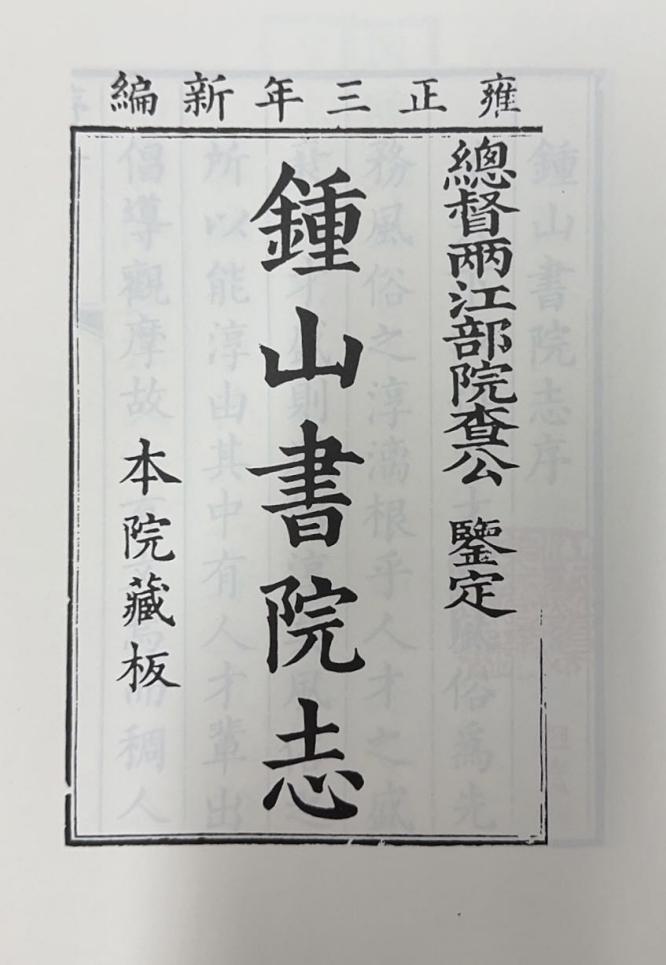 雍正三年新編
總督兩江部院查公 鑒定
鍾山書院志
本院藏板